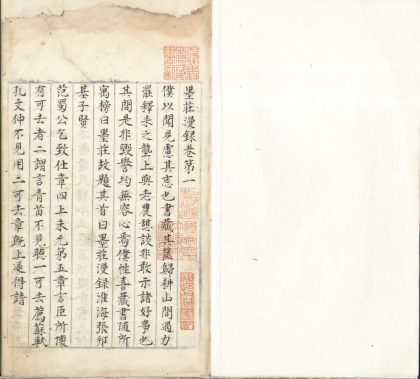 墨莊漫錄卷第一
僕以聞見慮其忘也書藏其篋歸耕山間遇力
罷釋耒之壟上與老農憩談非敢示諸好事也
其間是非毀譽均無容心焉僕性喜藏書隨所
寓榜曰墨莊故題其首曰墨莊漫錄淮海張邦
基子賢
范蜀公乞致仕章四上未允第五章言臣所陳
有可去者二謂言青苗不見聽一可去薦蘇軾
孔文仲不見用二可去章既上遂得請